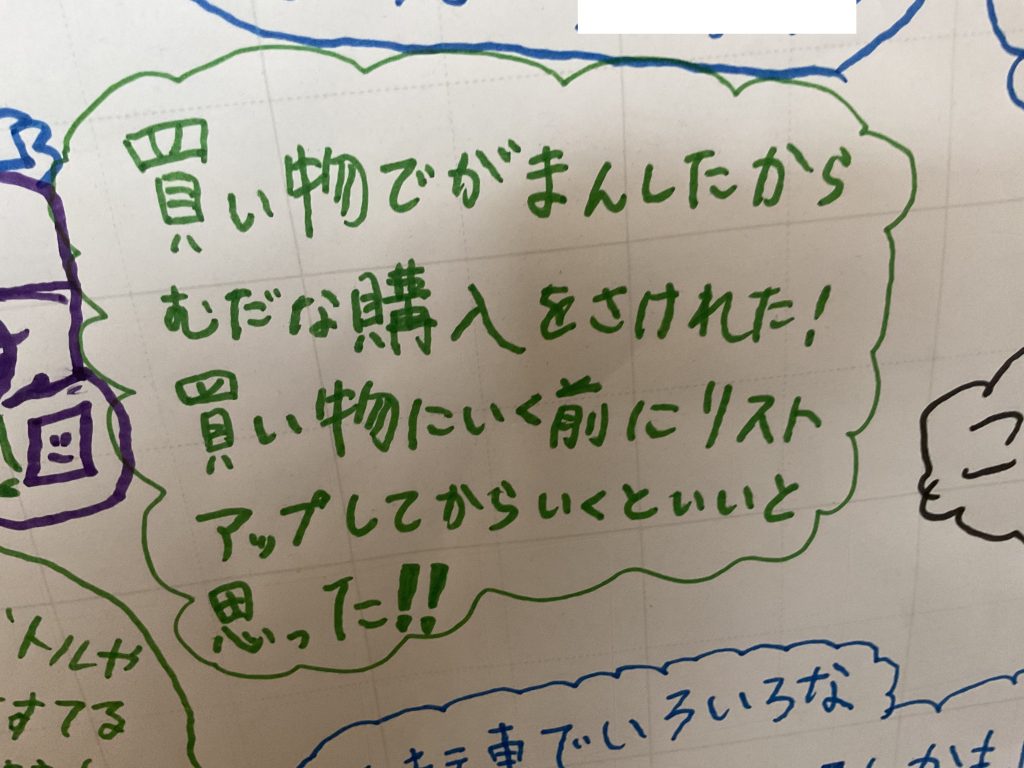 買い物でがまんしたから
むだな購入をさけれた!
買い物にいく前にリスト
アップしてからいくといいと
思った!!
トルや
すてる
転車でいろいろな